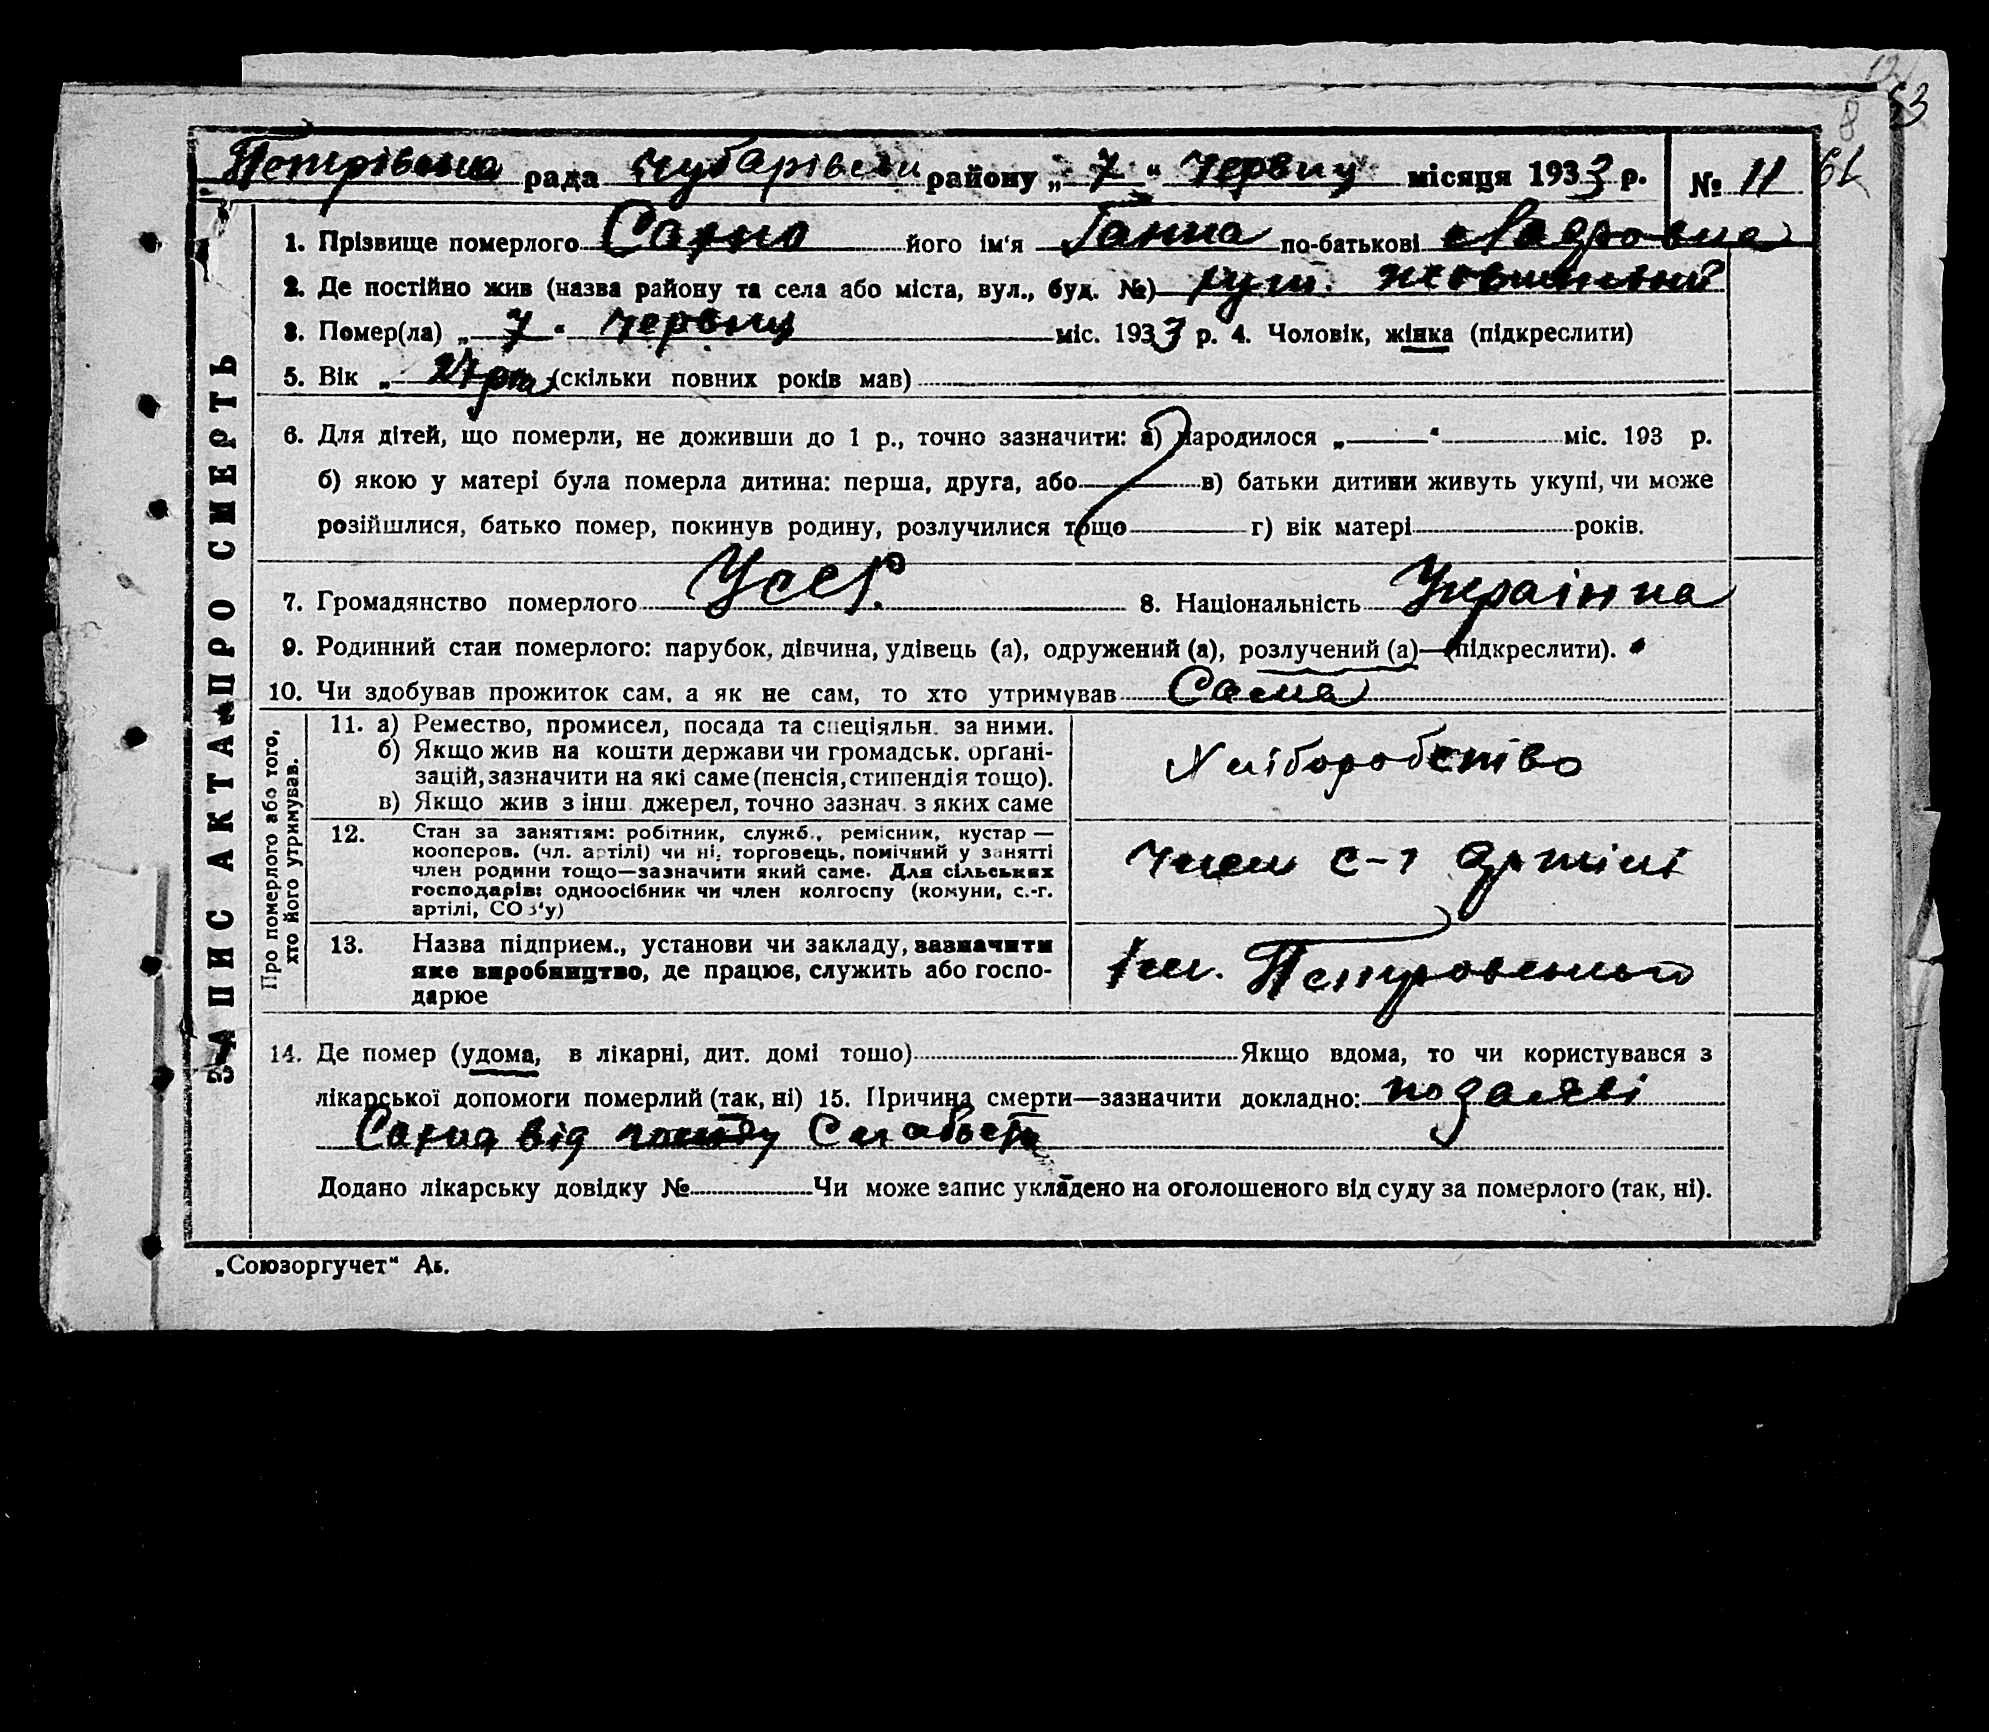 12
8 53
Петрівська рада Чубарівськ району „ 7 “ Червня місяця 1933 р. № 11 61
ЗАПИС АКТА ПРО СМЕРТЬ
1. Прізвище померлого його ім'я Ганна по-батькові
2. Де постійно жив (назва району та села або міста, вул., буд. №) хут.
3. Помер(ла) „ 7 “ Червня міс. 1933 р. 4. Чоловік, жінка (підкреслити)
5. Вік „ 27 (скільки повних років мав)
6. Для дітей, що померли, не доживши до 1 р., точно зазначити: а) народилося „ “ міс. 193 р.
б) якою у матері була померла дитина: перша, друга, або в) батьки дитини живуть укупі, чи може
розійшлися, батько помер, покинув родину, розлучилися тощо г) вік матері років.
7. Громадянство померлого УССР. 8. Національність Українка
9. Родинний стан померлого: парубок, дівчина, удівець (а), одружений (а), розлучений (а) (підкреслити).
10. Чи здобував прожиток сам, а як не сам, то хто утримував Сама
Про померлого або того,
хто його утримував.
11. а) Ремество, промисел, посада та спеціяльн. за ними.
б) Якщо жив на кошти держави чи громадськ. органі-
зацій, зазначити на які саме (пенсія, стипендія тощо).
в) Якщо жив з інш. джерел, точно зазнач. з яких саме
Хліборобство
12. Стан за заняттям: робітник, служб., ремісник, кустар —
коопсров. (чл. артілі) чи ні, торговець, помічний у занятті
член родини тощо—зазначити який саме. Для сільських
господарів: одноосібник чи член колгоспу (комуни, с.-г.
артілі, СОЗ'у)
Член с-г артілі
13. Назва підприєм., установи чи закладу, зазначити
яке виробництво, де працює, служить або госпо-
дарює
Ім. Петровського
14. Де помер (удома, в лікарні, дит. домі тощо) Якщо вдома, то чи користувався з
лікарської допомоги померлий (так, ні) 15. Причина смерти—зазначити докладно: по заяві
від
Додано лікарську довідку № Чи може запис укладено на оголошеного від суду за померлого (так, ні).
„Союзоргучет“